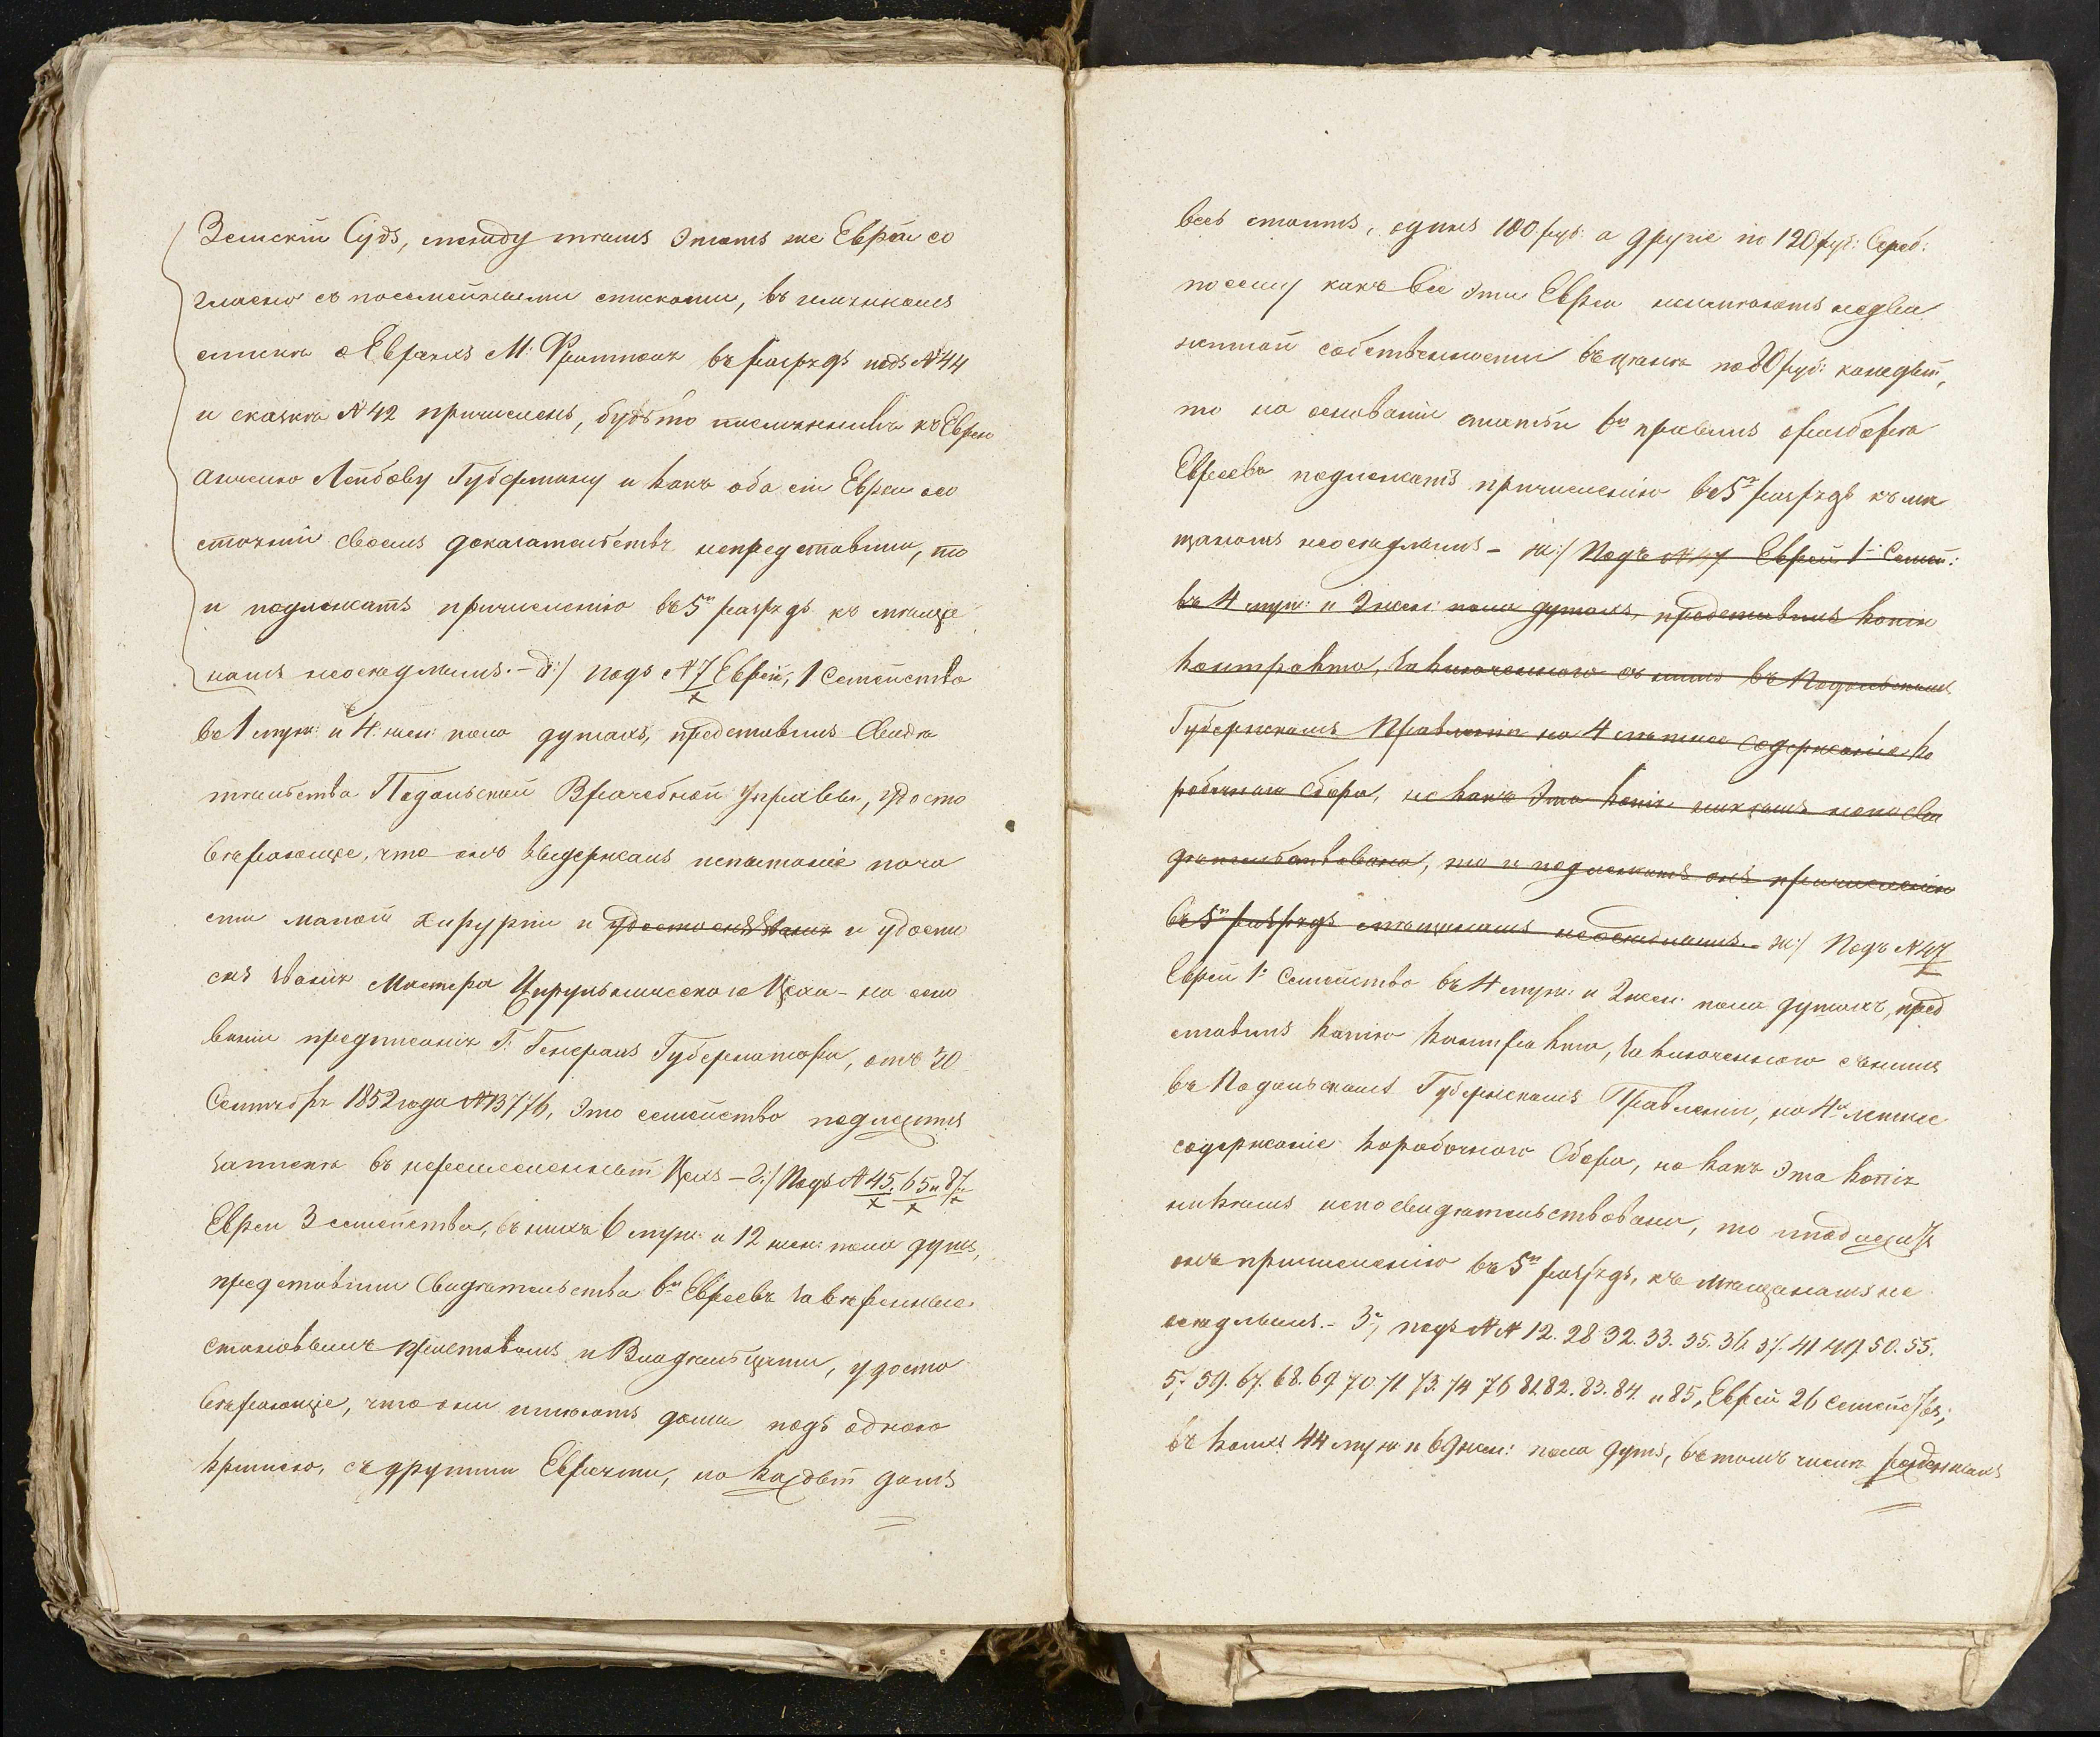 Земскій Судъ, между темъ этотъ же Еврей со
гласно съ посемейными списками, въ именномъ
списке о Евреяхъ М: въ разрядъ подъ №44
и сказка №42 причисленъ, будьто къ Еврею
Лейбову Губерману и какъ оба сіи Евреи осо
своимъ доказательствъ непредставили, то
и подлежатъ причисленію въ 5й разрядъ къ меще
намъ неоседлымъ. – в:/ подъ №7 Еврей, 1 Семейство
въ 1 муж: и 4 жен: пола душахъ, представилъ Свиде
тельство Подольской Врачебной Управы, удосто
веряющее, что онъ выдержалъ испытаніе по ча
сти малой хирургіи и удостоенъ званія и удосто
енъ званія Мастера Цирульническаго Цеха – на осно
ваніи предписанія Г. Генералъ Губернатора, отъ 30
Сентября 1852 года №13776, это семейство подлежитъ
записке въ неремесленный Цехъ – г:/ Подъ №45. 65 и 87.
Евреи 3 семейства, въ нихъ 6 муж: и 12 жен: пола душъ,
представили Свидетельства 6и Евреевъ заверенные
Становымъ Приставомъ и Владельцами, удосто
веряющіе, что они имеютъ домы подъ одною
крышею, съ другими Евреями, но каждый домъ
весь стоитъ, одинъ 100 руб: а другіе по 120 руб: Сереб:
посему какъ все эти Евреи неимеютъ недви
жимой собственности въ цене по руб: каждый,
то на основаніи статьи 6й правилъ о разборе
Евреевъ подлежатъ причисленію въ 5й разрядъ къ ме
щанамъ неоседлымъ – Подъ №47 Еврей 1: Семей:
въ 4 муж: и 2 жен: пола душахъ, представилъ копію
контракта, заключеннаго съ нимъ въ Подольскомъ
Губернскомъ Правленіи на 4 летнее содержаніе Ко
робочнаго Сбора, но какъ эта копія никемъ непосви
детельствована, то и подлежитъ онъ причисленію
въ 5й разрядъ к мещанамъ неоседлымъ. – ж:/ Подъ №47
Еврей 1: Семейство въ 4 муж: и 2 жен: пола душахъ, пред
ставилъ копію контракта, заключеннаго съ нимъ
въ Подольскомъ Губернскомъ Правленіи, на 4х летнее
содержаніе Коробочнаго Сбора, но какъ эта копія
никемъ непосвидетельствована, то и подлежитъ
онъ причисленію въ 5й разрядъ, къ мещанамъ не
оседлымъ. – 3, подъ №№ 12. 28 32. 33. 35. 36. 37. 41 49. 50. 55.
57. 59. 67. 68. 69 70 71 73. 74 76 81 82. 83. 84 и 85, Еврей 26 семействъ,
въ коихъ 44 муж и 69 жен: пола душъ, въ томъ числе